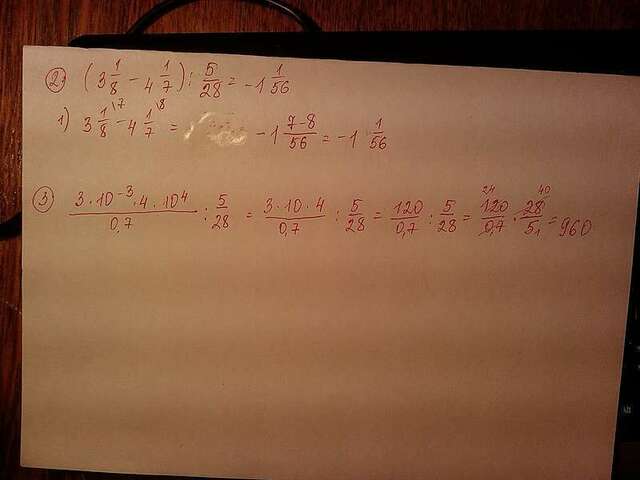 2) (3 1/8 - 4 1/7) : 5/28 = -1 1/56
1) 3 1/8 \7 - 4 1/7 \8 = -1 7-8/56 = -1 1/56
3 3·10⁻³·4·10⁴/0,7 : 5/28 = 3·10·4/0,7 : 5/28 = 120/0,7 : 5/28 = 24 120/0,7 · 28 40/5 1 = 960